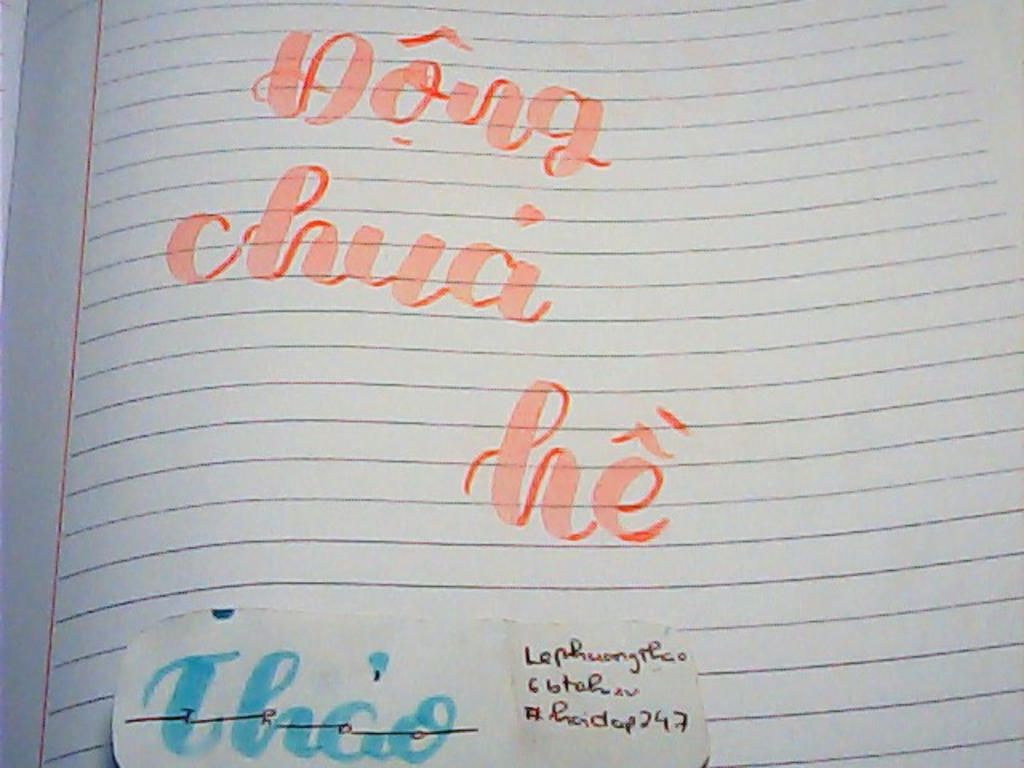 Động
chưa
hề
Thảo
Lephuongthao
#hoidap247